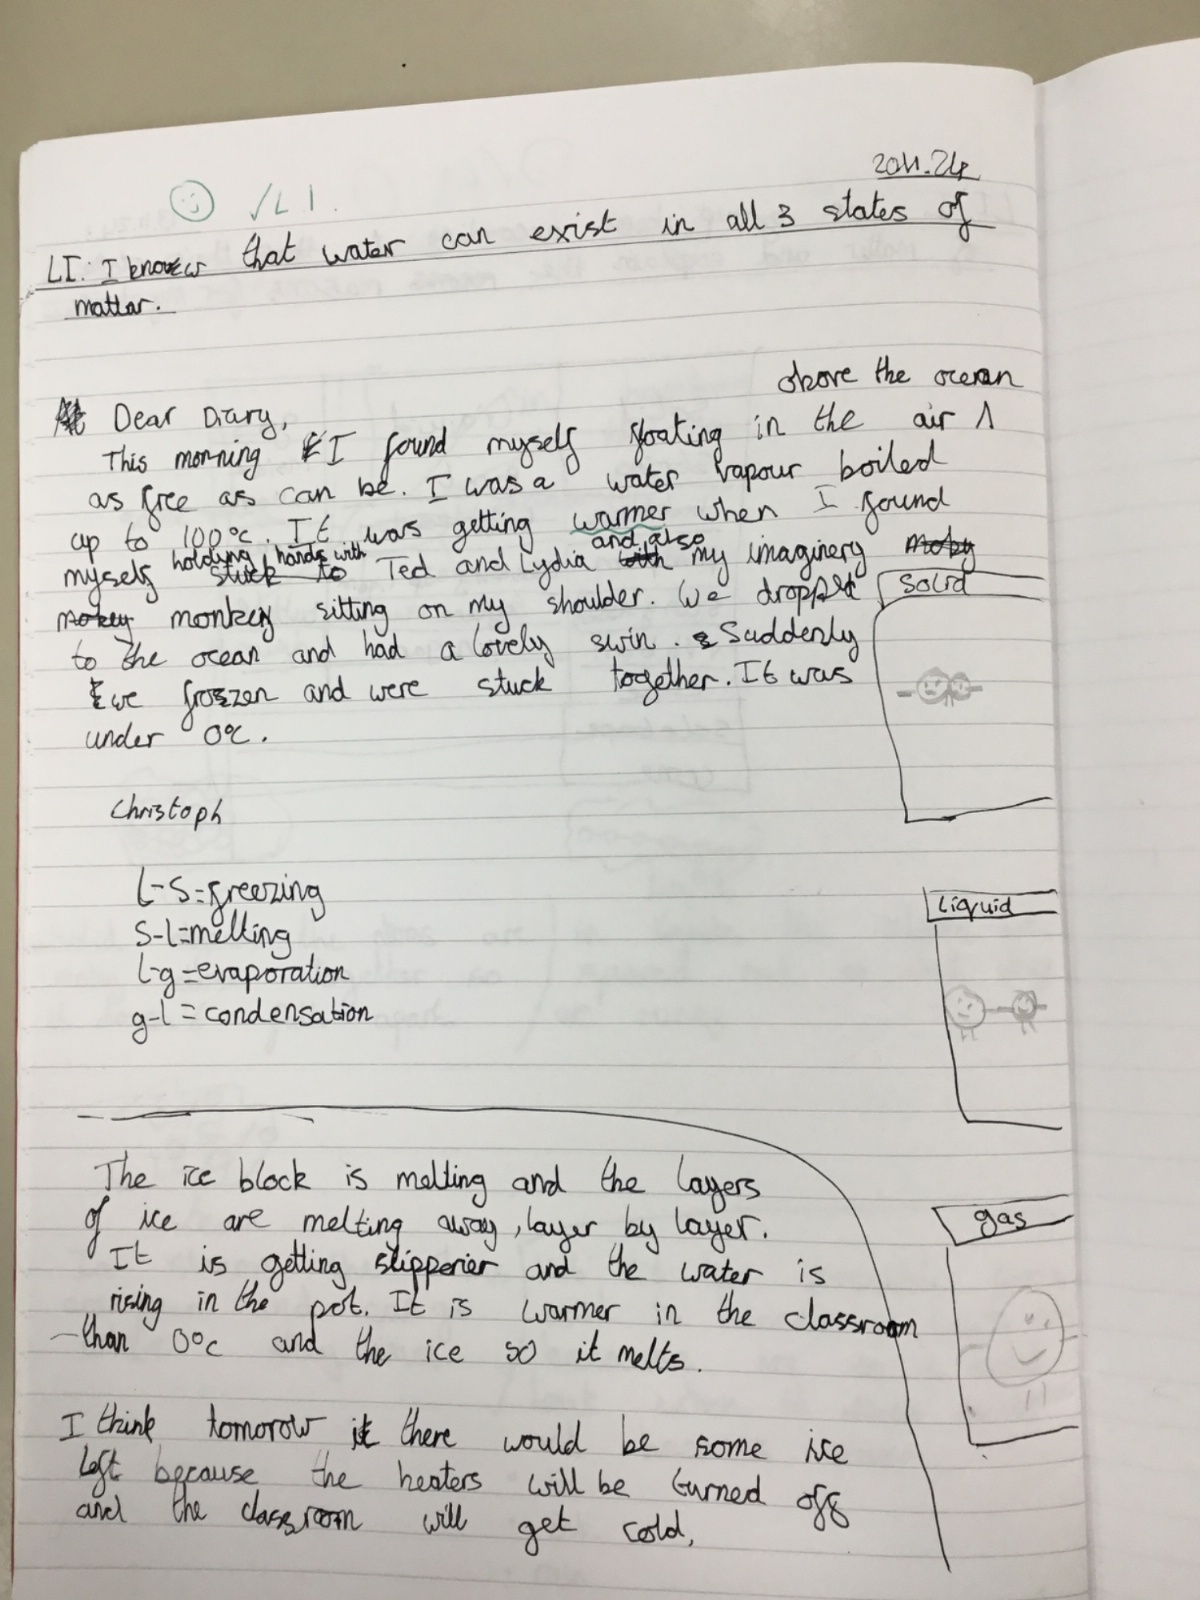 20.11.24
✓L I.
LI: I know that water can exist in all 3 states of
mattar.
above the ocean
Dear Diary,
This morning I found myself floating in the air ^
as free as can be. I was a water vapour boiled
up to 100°c. It was getting warmer when I found
and also
holding hands with
myself stuck to Ted and Lydia with my imaginery monky
mokey monkey sitting on my shoulder. We dropped
to the ocean and had a lovely swin. Suddenly
we froszen and were stuck together. It was
under 0°c.
Solid
Christoph
L-S=freezing
S-L=melting
L-g=evaporation
g-L=condensation
Liquid
The ice block is melting and the layers
of ice are melting away, layer by layer.
It is getting slipperier and the water is
rising in the pot. It is warmer in the classroom
than 0°c and the ice so it melts.
gas
I think tomorow it there would be some ice
left because the heaters will be turned off
and the classroom will get cold,